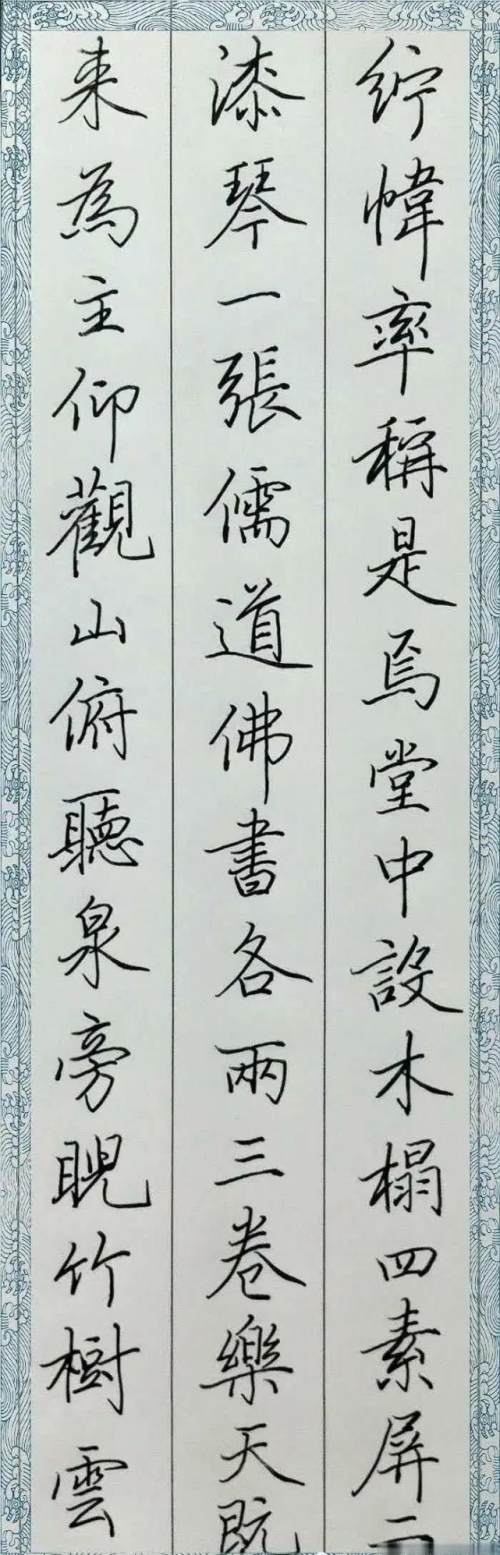 紵幃率稱是焉堂中設木榻四素屏二
漆琴一張儒道佛書各兩三卷樂天既
来為主仰觀山俯聽泉旁睨竹樹雲